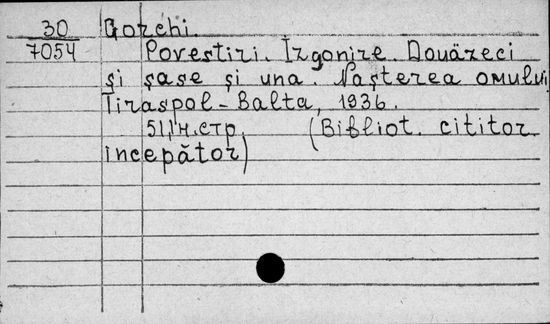 30 Gorchi.
7054 Povestiri. Izgonire. Douăzeci
și șase și una. Nașterea omului
Tiraspol-Balta, 1936.
51,1н.стр. (Bibliot. cititor
începător)